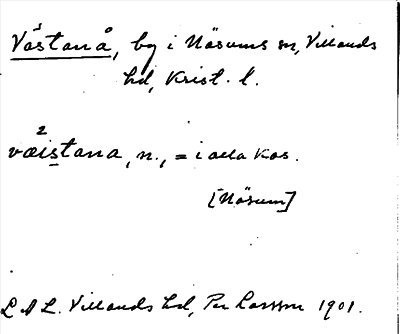 Västanå, by i Näsums sn, Villands
hd, Krist. l.
2
væistana, n., = i alla kas.
[Näsum]
L A L. Villands hd, Per Larsson 1901.